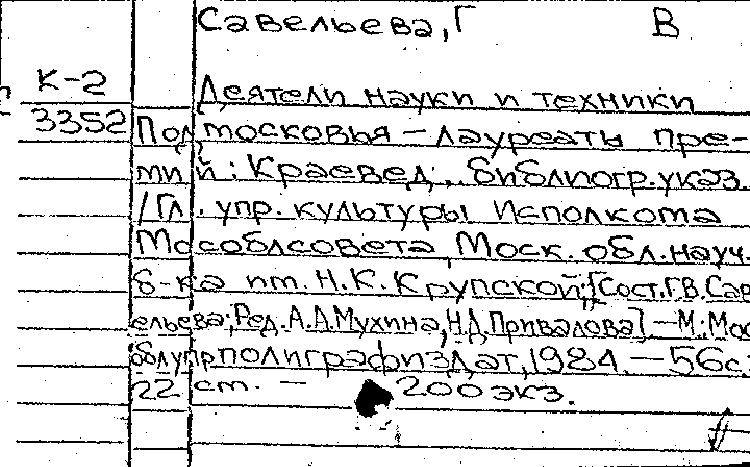 Савельева, Г В
К-2
Деятели науки и техники
3352
Подмосковья — лауреаты пре-
мий: Краевед. библиогр. указ.
/Гл. упр. культуры Исполкома
Мособлсовета, Моск. обл. науч.
б-ка им. Н.К. Крупской; [Сост. Г.В. Сав
ельева; Ред. А.А. Мухина, Н.Д. Привалова] — М.: Мос
облупрполиграфиздат, 1984. — 56с.
22 см. — 200 экз.